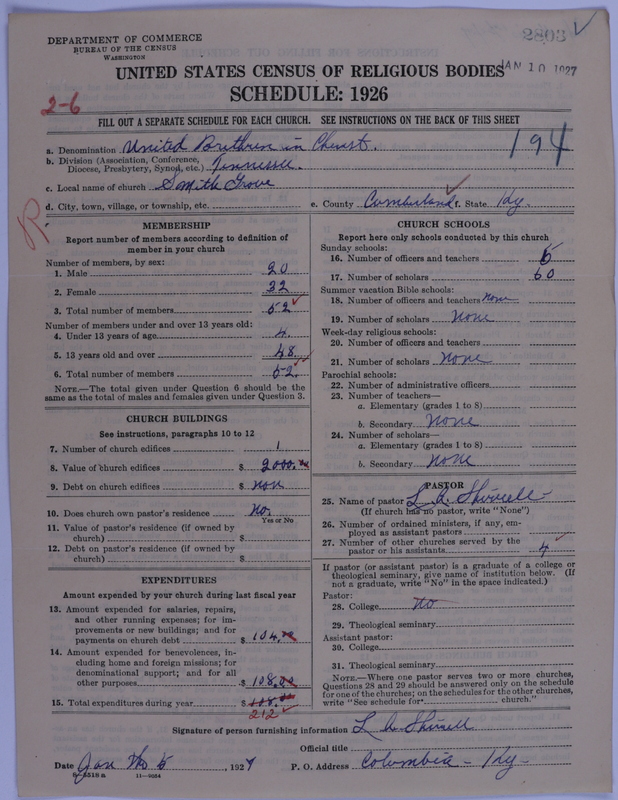 DEPARTMENT OF COMMERCE
BUREAU OF THE CENSUS
WASHINGTON
2803
JAN 10 1927
UNITED STATES CENSUS OF RELIGIOUS BODIES
SCHEDULE: 1926
2-6
FILL OUT A SEPARATE SCHEDULE FOR EACH CHURCH. SEE INSTRUCTIONS ON THE BACK OF THIS SHEET
194
a. Denomination United Brethren in Christ.
b. Division (Association, Conference,
Diocese, Presbytery, Synod, etc.) Tennessee.
c. Local name of church Smith Grove
d. City, town, village, or township, etc.
e. County Cumberland f. State Ky.
R
MEMBERSHIP
Report number of members according to definition of
member in your church
Number of members, by sex:
1. Male 20
2. Female 32
3. Total number of members 52
Number of members under and over 13 years old:
4. Under 13 years of age 4.
5. 13 years old and over 48
6. Total number of members 52.
NOTE.—The total given under Question 6 should be the
same as the total of males and females given under Question 3.
CHURCH BUILDINGS
See instructions, paragraphs 10 to 12
7. Number of church edifices 1
8. Value of church edifices $ 2000.00
9. Debt on church edifices $ non
10. Does church own pastor's residence No.
Yes or No
11. Value of pastor's residence (if owned by
church) $
12. Debt on pastor's residence (if owned by
church) $
EXPENDITURES
Amount expended by your church during last fiscal year
13. Amount expended for salaries, repairs,
and other running expenses; for im-
provements or new buildings; and for
payments on church debt $ 104.00
14. Amount expended for benevolences, in-
cluding home and foreign missions; for
denominational support; and for all
other purposes $ 108.00
15. Total expenditures during year $ 108.00
212
CHURCH SCHOOLS
Report here only schools conducted by this church
Sunday schools:
16. Number of officers and teachers 5
17. Number of scholars 60
Summer vacation Bible schools:
18. Number of officers and teachers None
19. Number of scholars None
Week-day religious schools:
20. Number of officers and teachers
21. Number of scholars None
Parochial schools:
22. Number of administrative officers
23. Number of teachers—
a. Elementary (grades 1 to 8)
b. Secondary None
24. Number of scholars—
a. Elementary (grades 1 to 8)
b. Secondary None
PASTOR
25. Name of pastor L. A.
(If church has no pastor, write "None")
26. Number of ordained ministers, if any, em-
ployed as assistant pastors
27. Number of other churches served by the
pastor or his assistants 4
If pastor (or assistant pastor) is a graduate of a college or
theological seminary, give name of institution below. (If
not a graduate, write "No" in the space indicated.)
Pastor:
28. College no
29. Theological seminary
Assistant pastor:
30. College
31. Theological seminary
NOTE.—Where one pastor serves two or more churches,
Questions 28 and 29 should be answered only on the schedule
for one of the churches; on the schedules for the other churches,
write "See schedule for church."
Signature of person furnishing information L A
Official title
Date Jan 5, 1927
P. O. Address Columbia - Ky-
11—9054